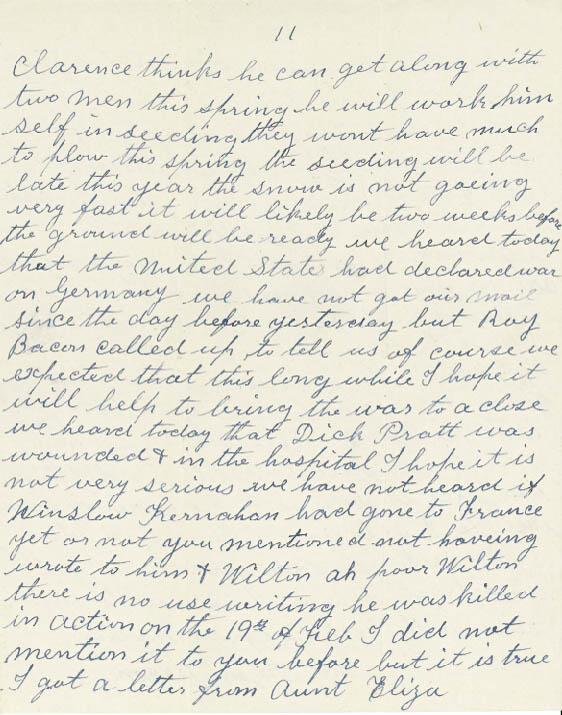 11
Clarence thinks he can get along with
two men this spring he will work him
self in seeding they wont have much
to plow this spring the seeding will be
late this year the snow is not goeing
very fast it will likely be two weeks before
the ground will be ready we heard today
that the United State had declared war
on Germany we have not got our mail
since the day before yesterday but Roy
Bacon called up to tell us of course we
expected that this long while I hope it
will help to bring the war to a close
we heard today that Dick Pratt was
wounded & in the hospital I hope it is
not very serious we have not heard if
Winslow Kernahan had gone to France
yet or not you mentioned not haveing
wrote to him & Wilton ah poor Wilton
there is no use writing he was killed
in action on the 19th of Feb I did not
mention it to you before but it is true
I got a letter from Aunt Eliza